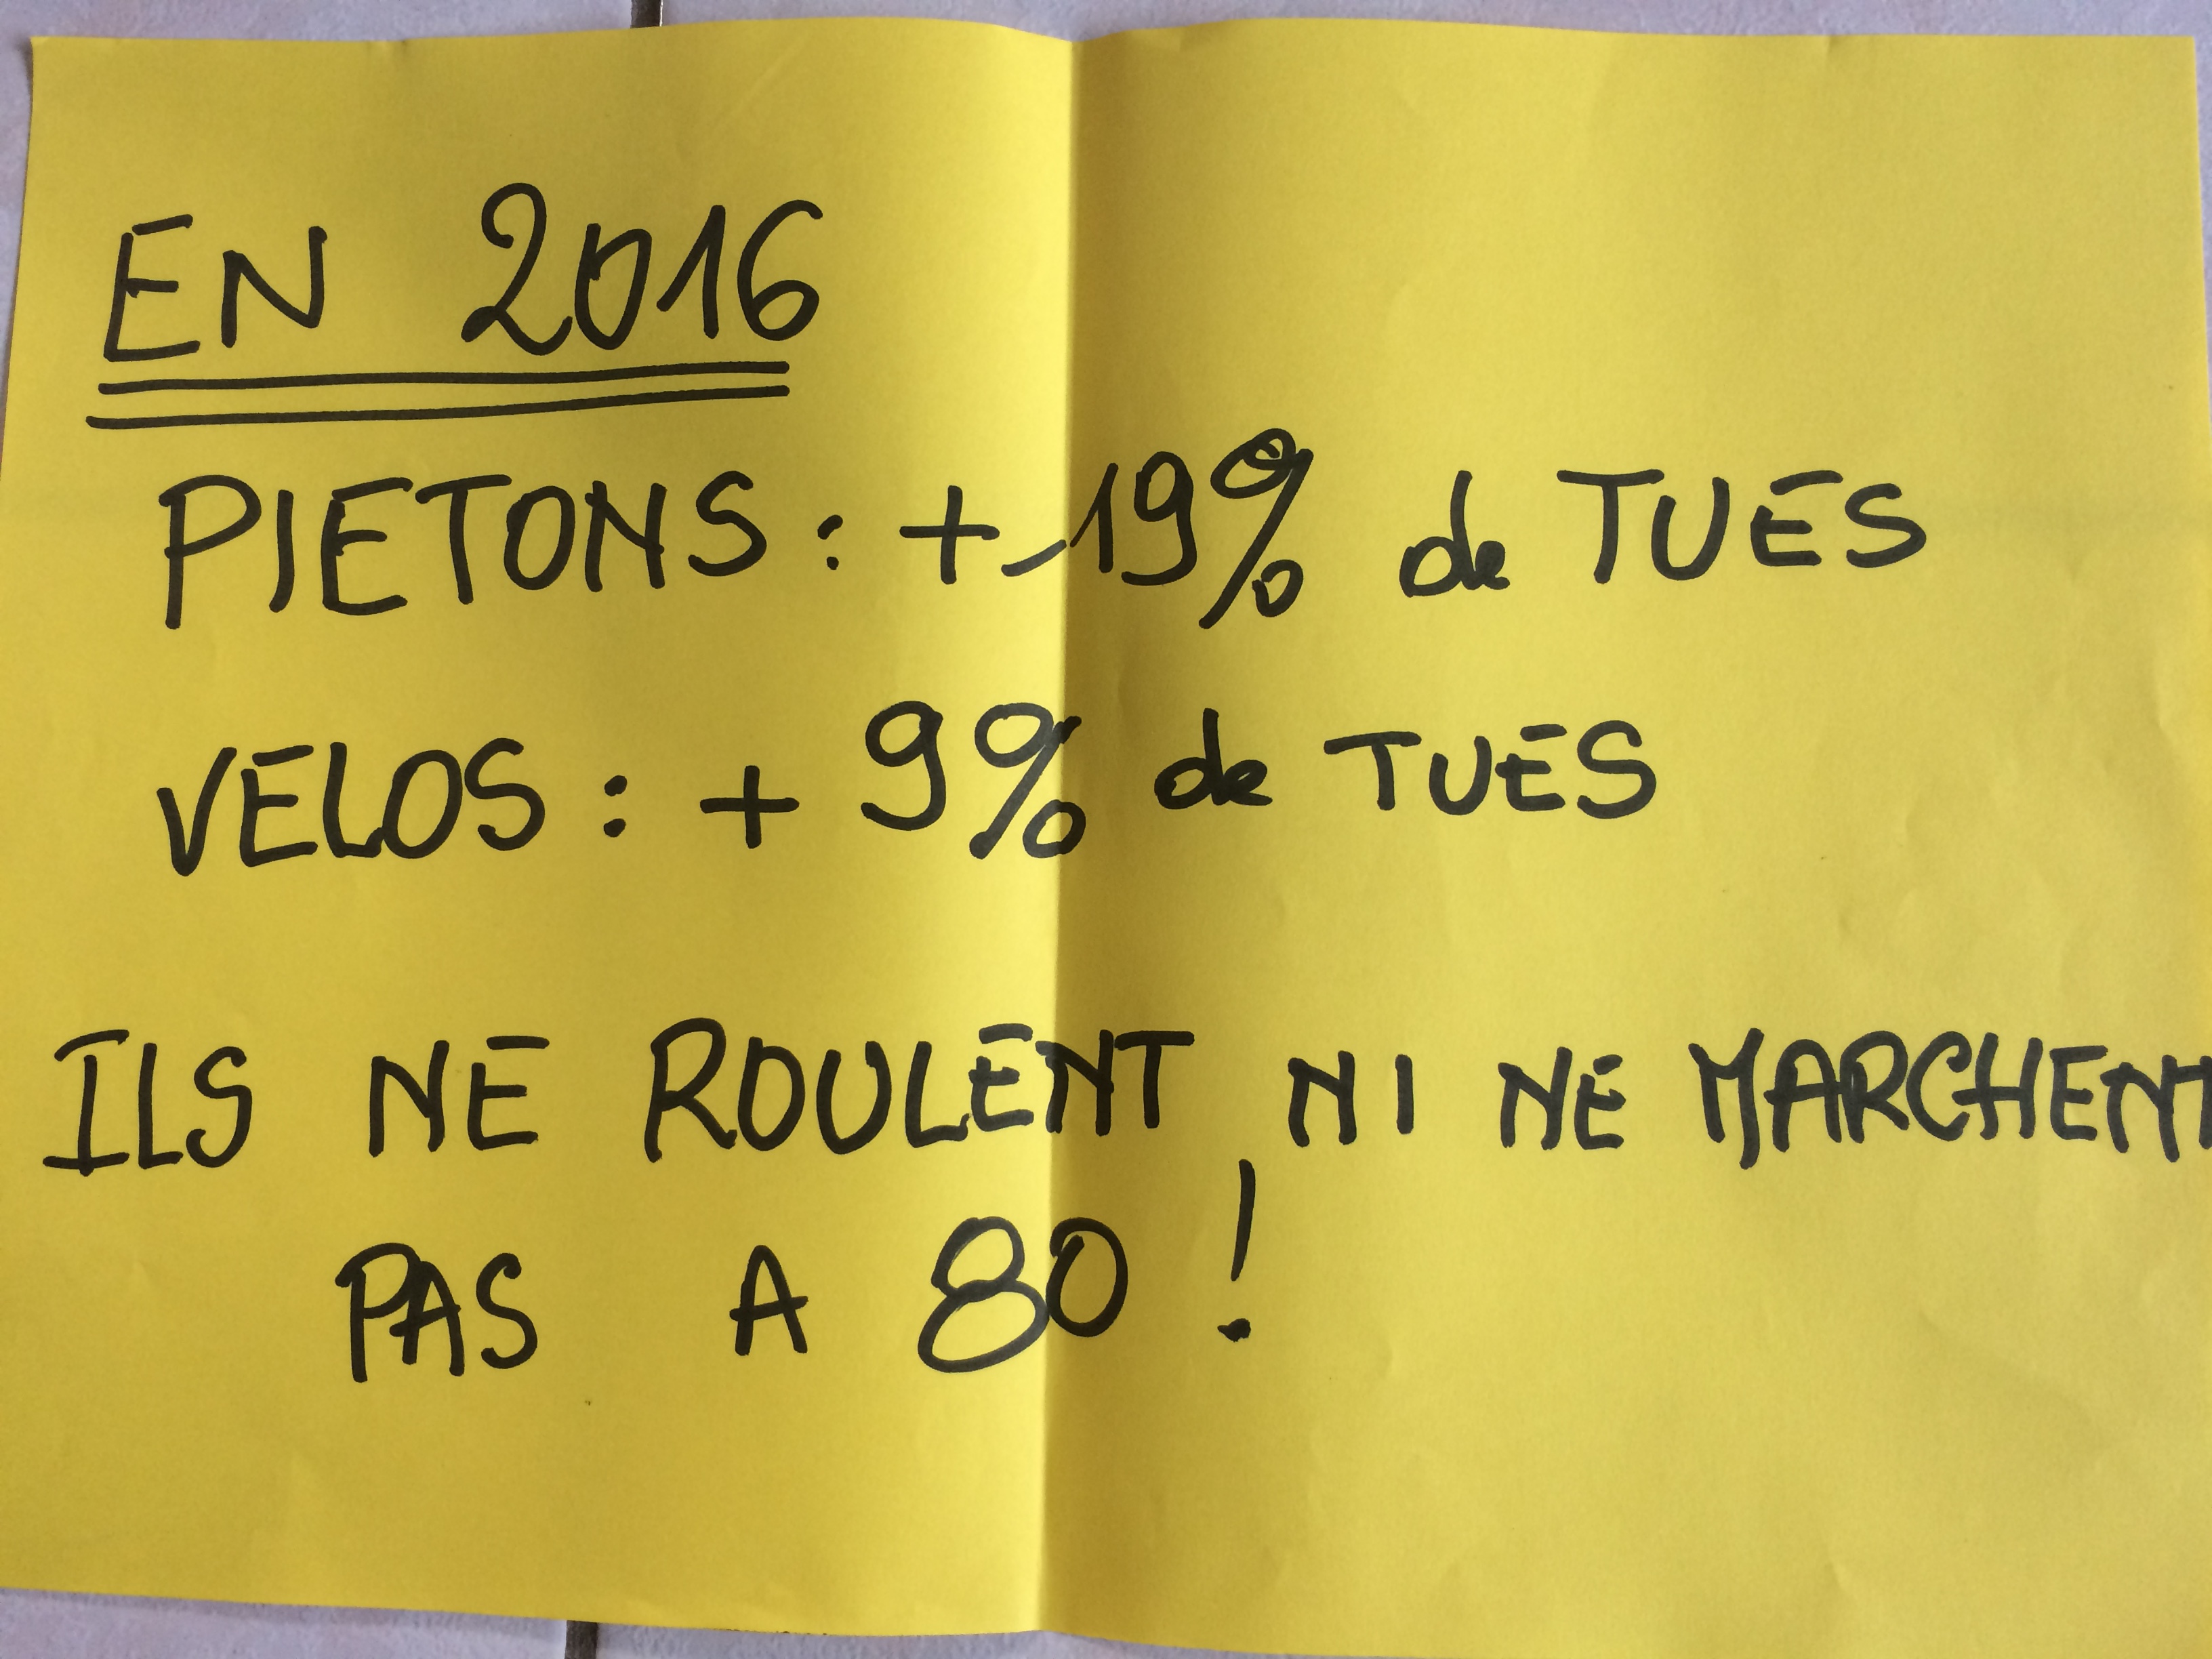 EN 2016
PIETONS : + 19% de TUES
VELOS : + 9% de TUES
ILS NE ROULENT NI NE MARCHENT
PAS A 80 !